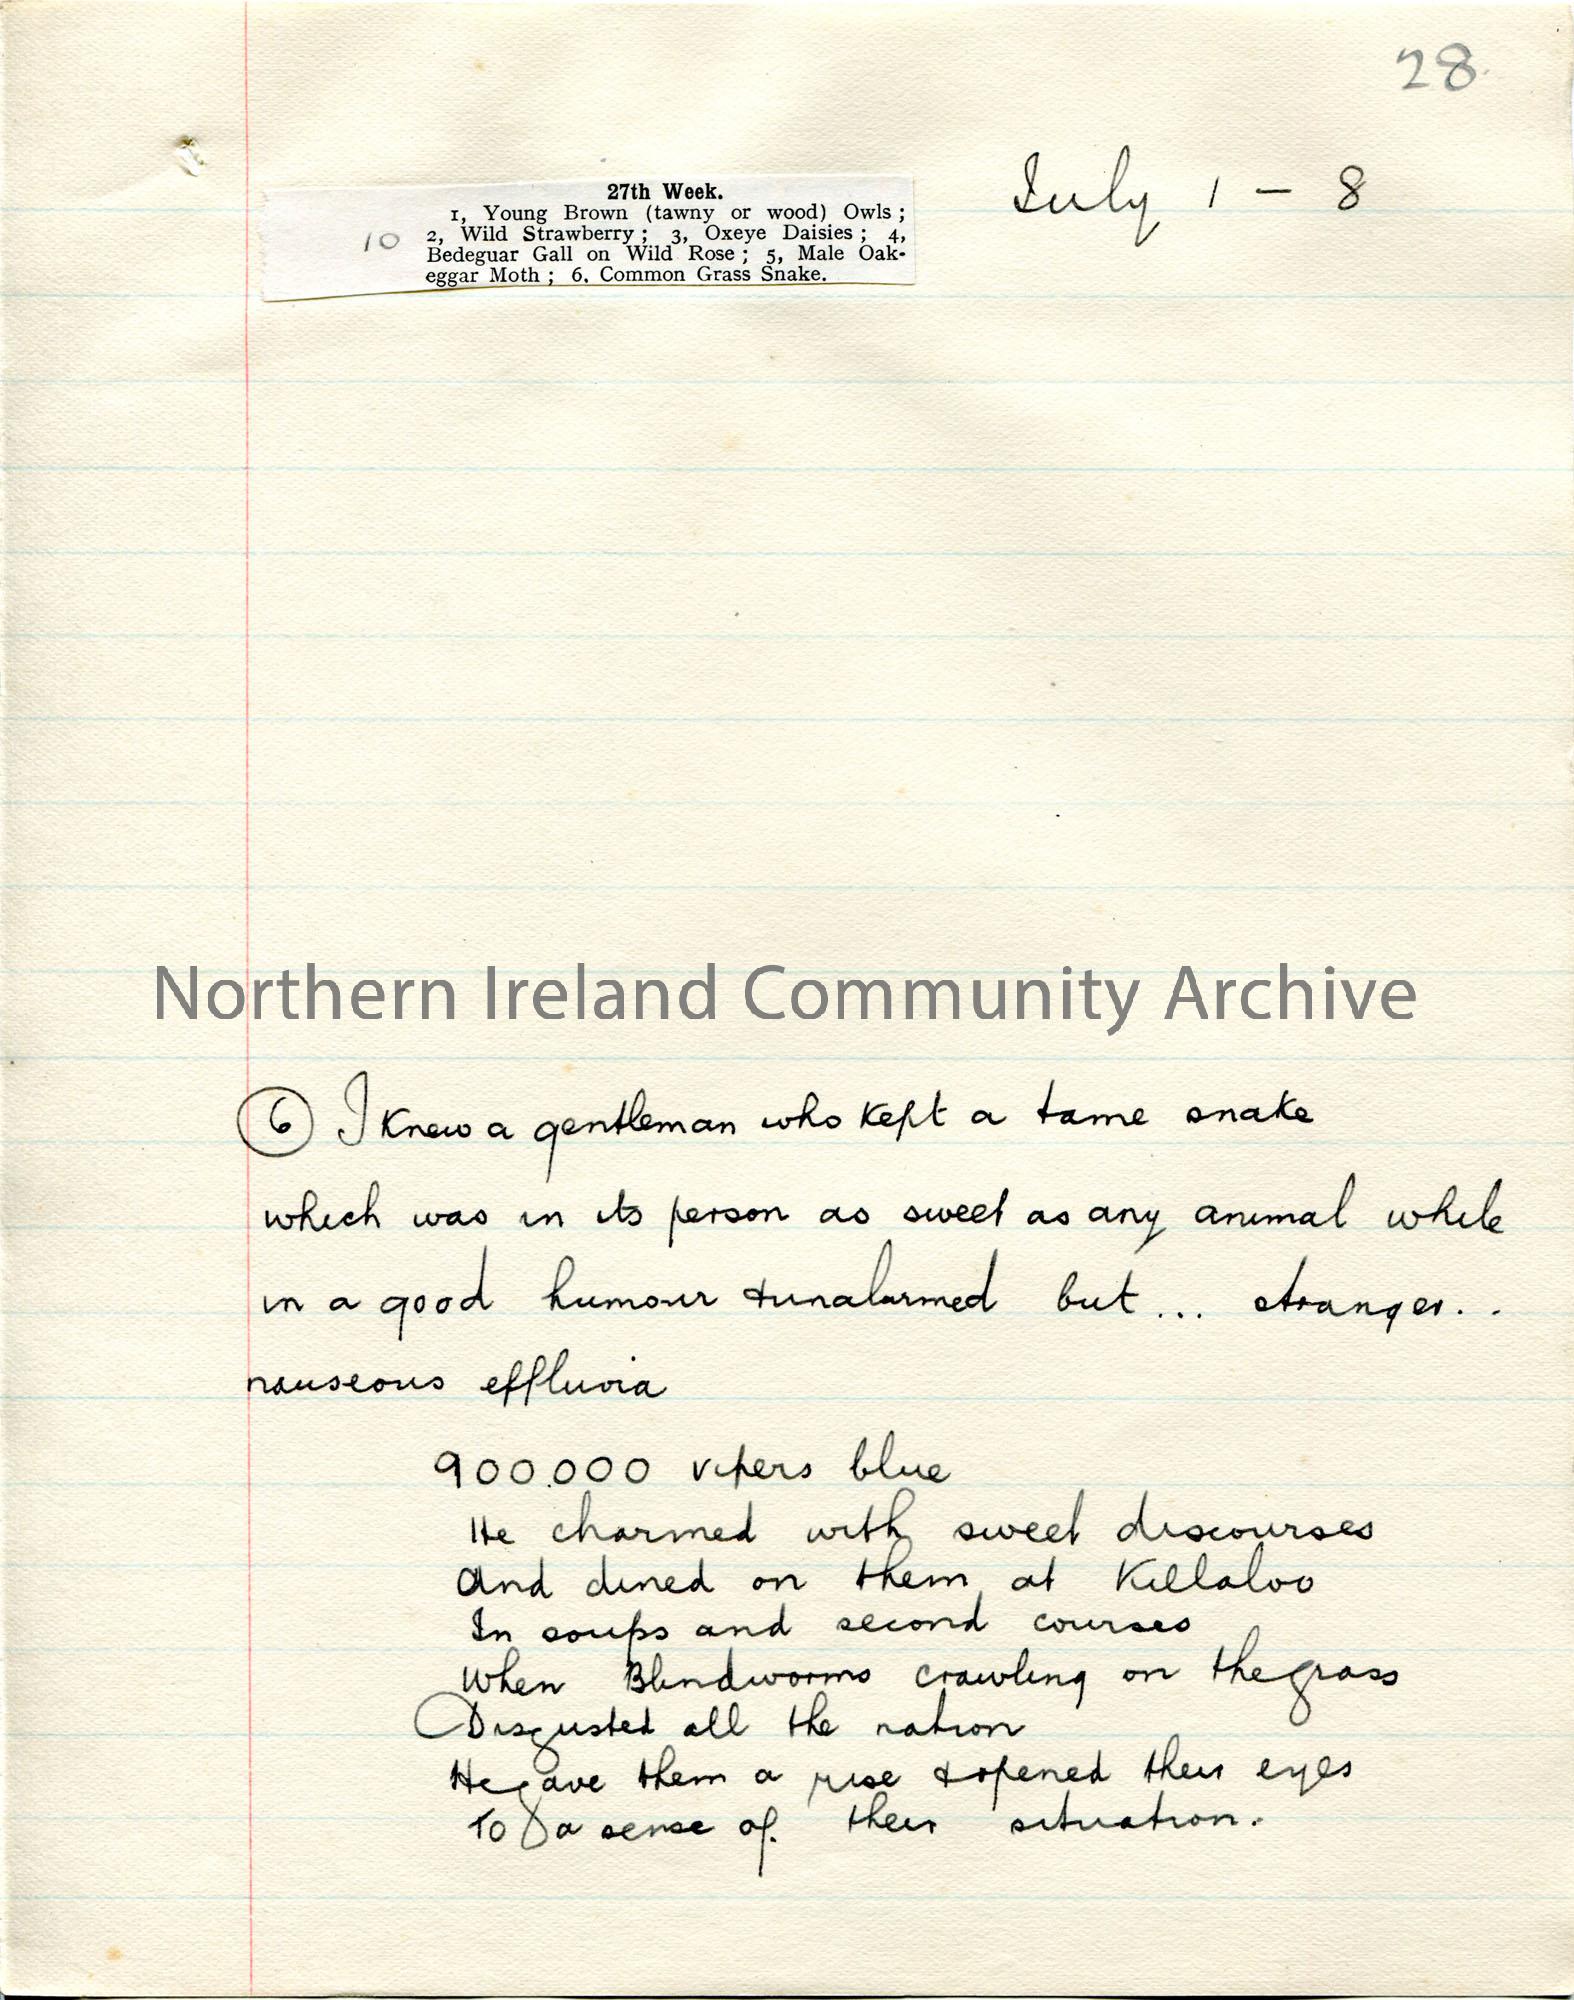 28
July 1 – 8
27th Week.
1, Young Brown (tawny or wood) Owls ;
10 2, Wild Strawberry ; 3, Oxeye Daisies ; 4,
Bedeguar Gall on Wild Rose ; 5, Male Oak-
eggar Moth ; 6. Common Grass Snake.
Northern Ireland Community Archive
6 I knew a gentleman who kept a tame snake
which was in its person as sweet as any animal while
in a good humour & unalarmed but ... stranger. .
nauseous effluvia
900.000 vipers blue
He charmed with sweet discourses
And dined on them at Killaloo
In soups and second courses
When Blindworms crawling on the grass
Disgusted all the nation
He gave them a rise & opened their eyes
To a sense of their situation.